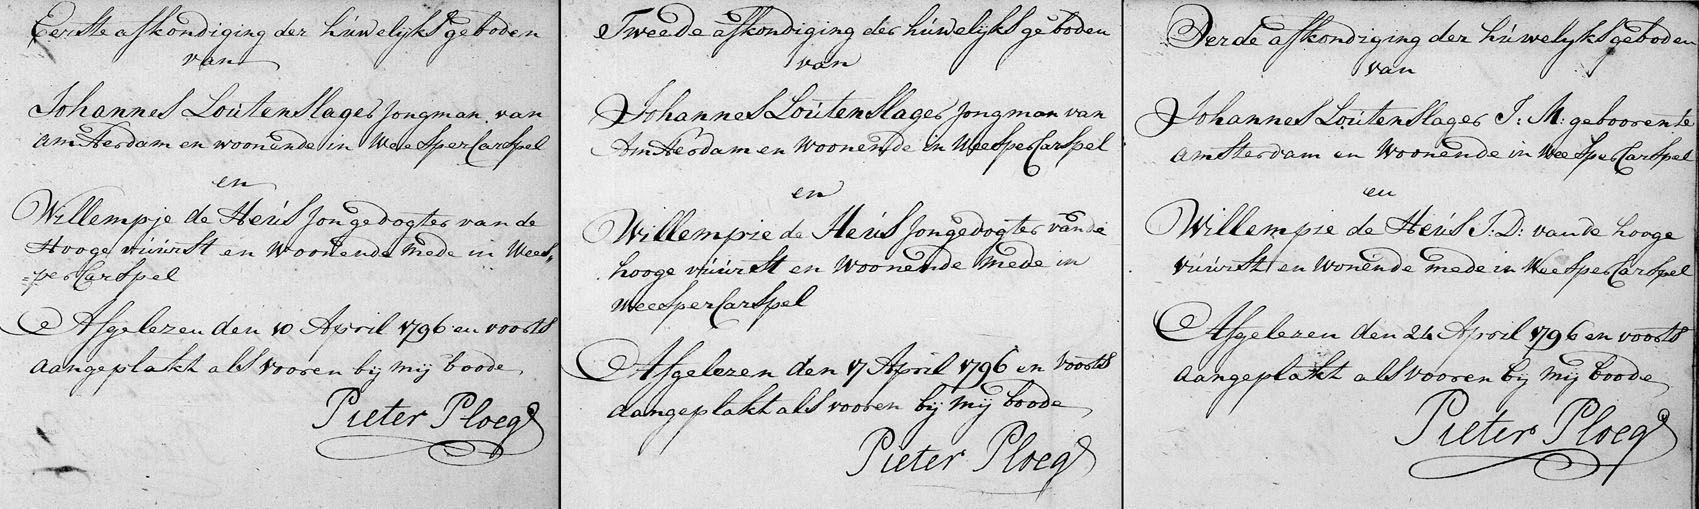 Eerste afkondiging der húwelijks geboden
van
Johannes Loútenslager Jongman van
amsterdam en woonende in Weesper Carspel
en
Willempje de Heús Jongedogter van de
Hooge vúúrst en woonende mede in Wees„
„per Carspel
Afgelezen den 10 April 1796 en voorts
aangeplakt als vooren bij mij boode
Pieter Ploeg
Tweede afkondiging der húwelijks geboden
van
Johannes Loútenslager Jongman van
Amsterdam en woonende in Weesper Carspel
en
Willempie de Heús Jongedogter van de
hooge vúúrst en woonende mede in
Weesper Carspel
Afgelezen den 17 April 1796 en voorts
aangeplakt als vooren bij mij boode
Pieter Ploeg
Derde afkondiging der húwelijks geboden
van
Johannes Loútenslager J: M: gebooren te
amsterdam en woonende in Weesper Carspel
en
Willempie de Heús J: D: van de hooge
vúúrst en wonende mede in Weesper Carspel
Afgelezen den 24 April 1796 en voorts
aangeplakt als vooren bij mij boode
Pieter Ploeg